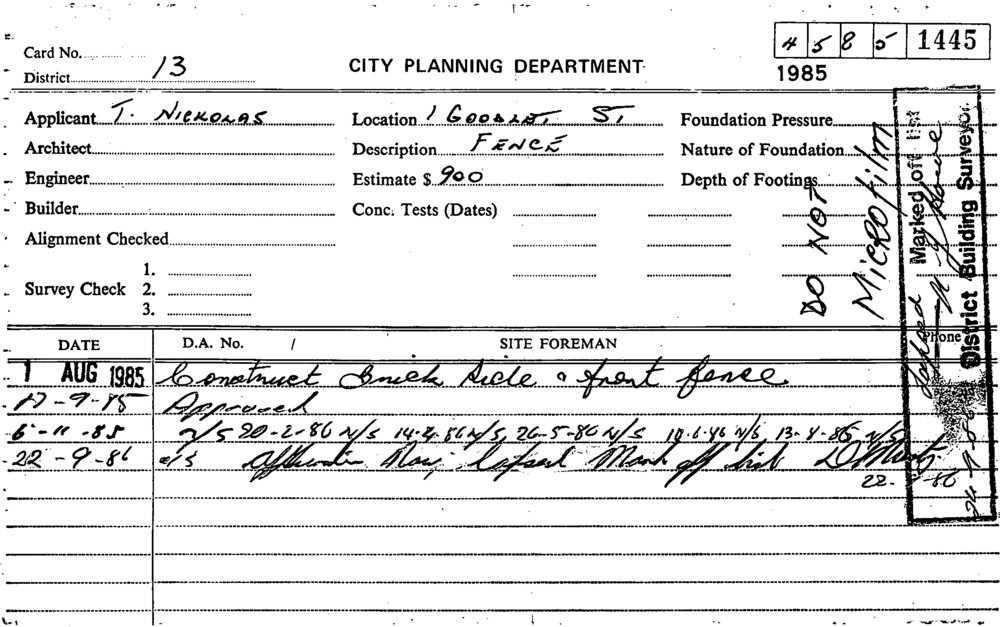 4 5 8 5 1445
1985
Card No.
District 13
CITY PLANNING DEPARTMENT
Applicant T. NICKOLAS
Location 1 GOODLET ST
Foundation Pressure
Architect
Description FENCE
Nature of Foundation
Engineer
Estimate $ 900
Depth of Footings
Builder
Conc. Tests (Dates)
Alignment Checked
Survey Check
1.
2.
3.
DO NOT
MICROFILM
Marked off list
District Building Surveyor.
Lapsed
DATE
D.A. No. /
SITE FOREMAN
Phone
1 AUG 1985 Construct Brick side & front fence
17-9-85 Approved
6-11-85 N/S 20-2-86 N/S 14-4-86 N/S, 26-5-86 N/S N/S N/S
22-9-86 N/S lapsed Mark off list